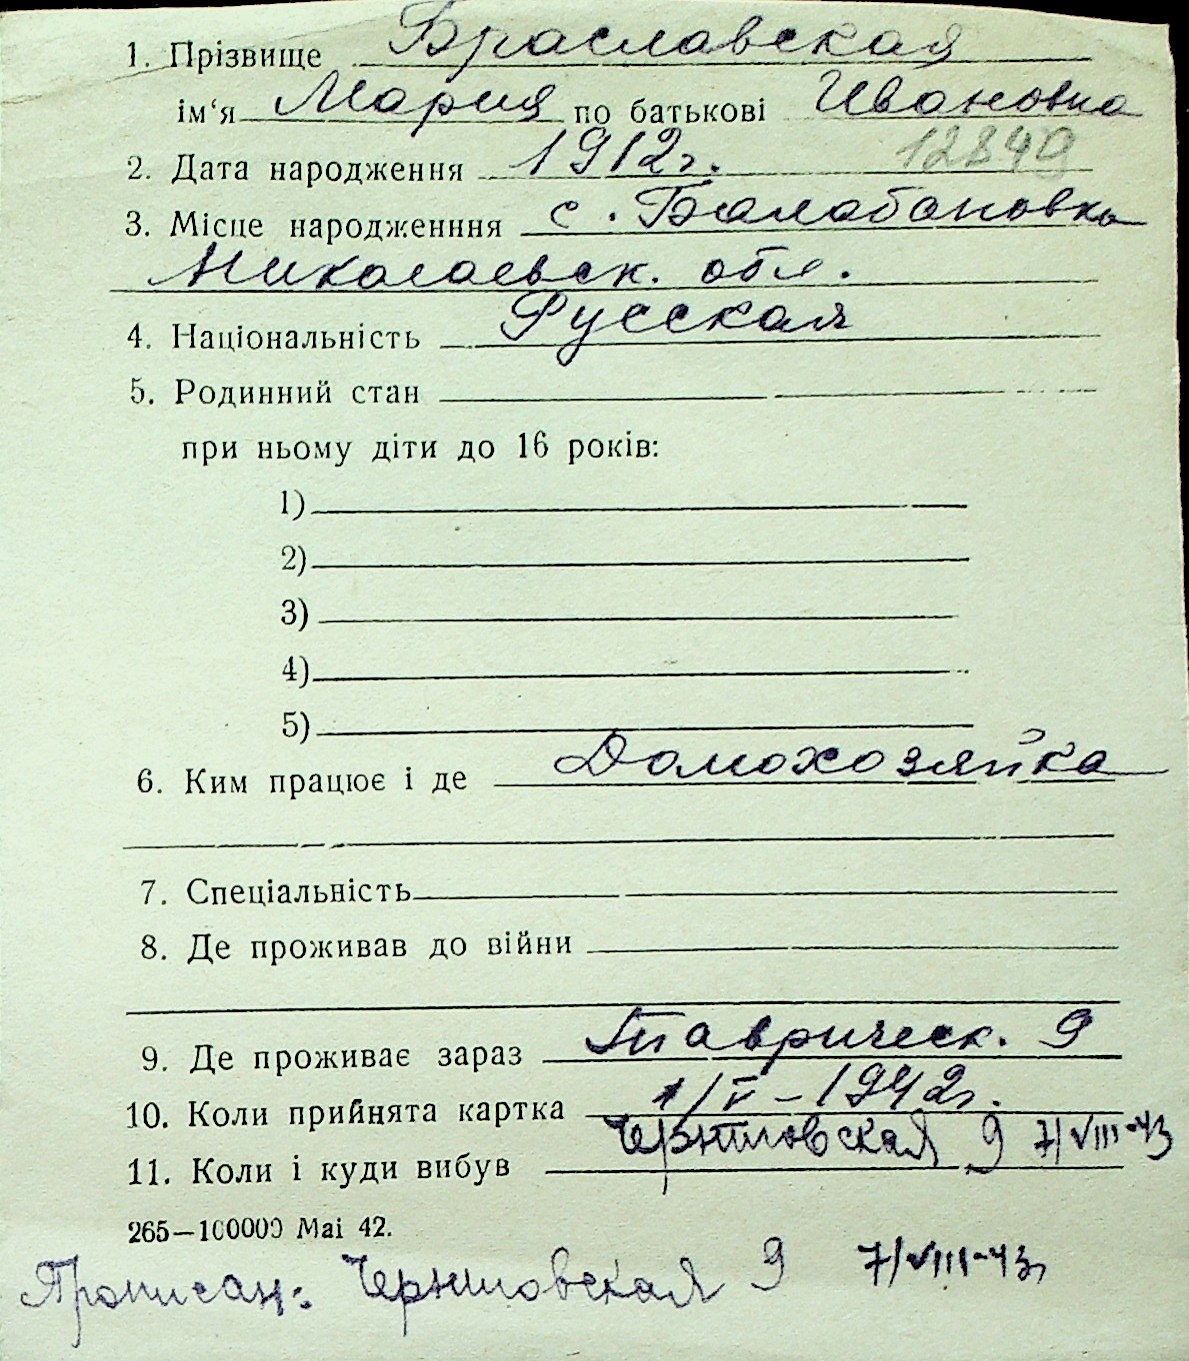 1. Прізвище Браславская
ім‘я Мария по батькові Ивановна
2. Дата народження 1912г. 12849
3. Місце народженння с. Балабановка
Николаевск. обл.
4. Національність Русская
5. Родинний стан
при ньому діти до 16 років:
1)
2)
3)
4)
5)
6. Ким працює і де Домохозяйка
7. Спеціальність
8. Де проживав до війни
9. Де проживає зараз Таврическ. 9
10. Коли прийнята картка 1/V – 1942г.
11. Коли і куди вибув 9 7/VIII-43
265—100000 Mai 42.
Прописан: 9 7/VIII-43г